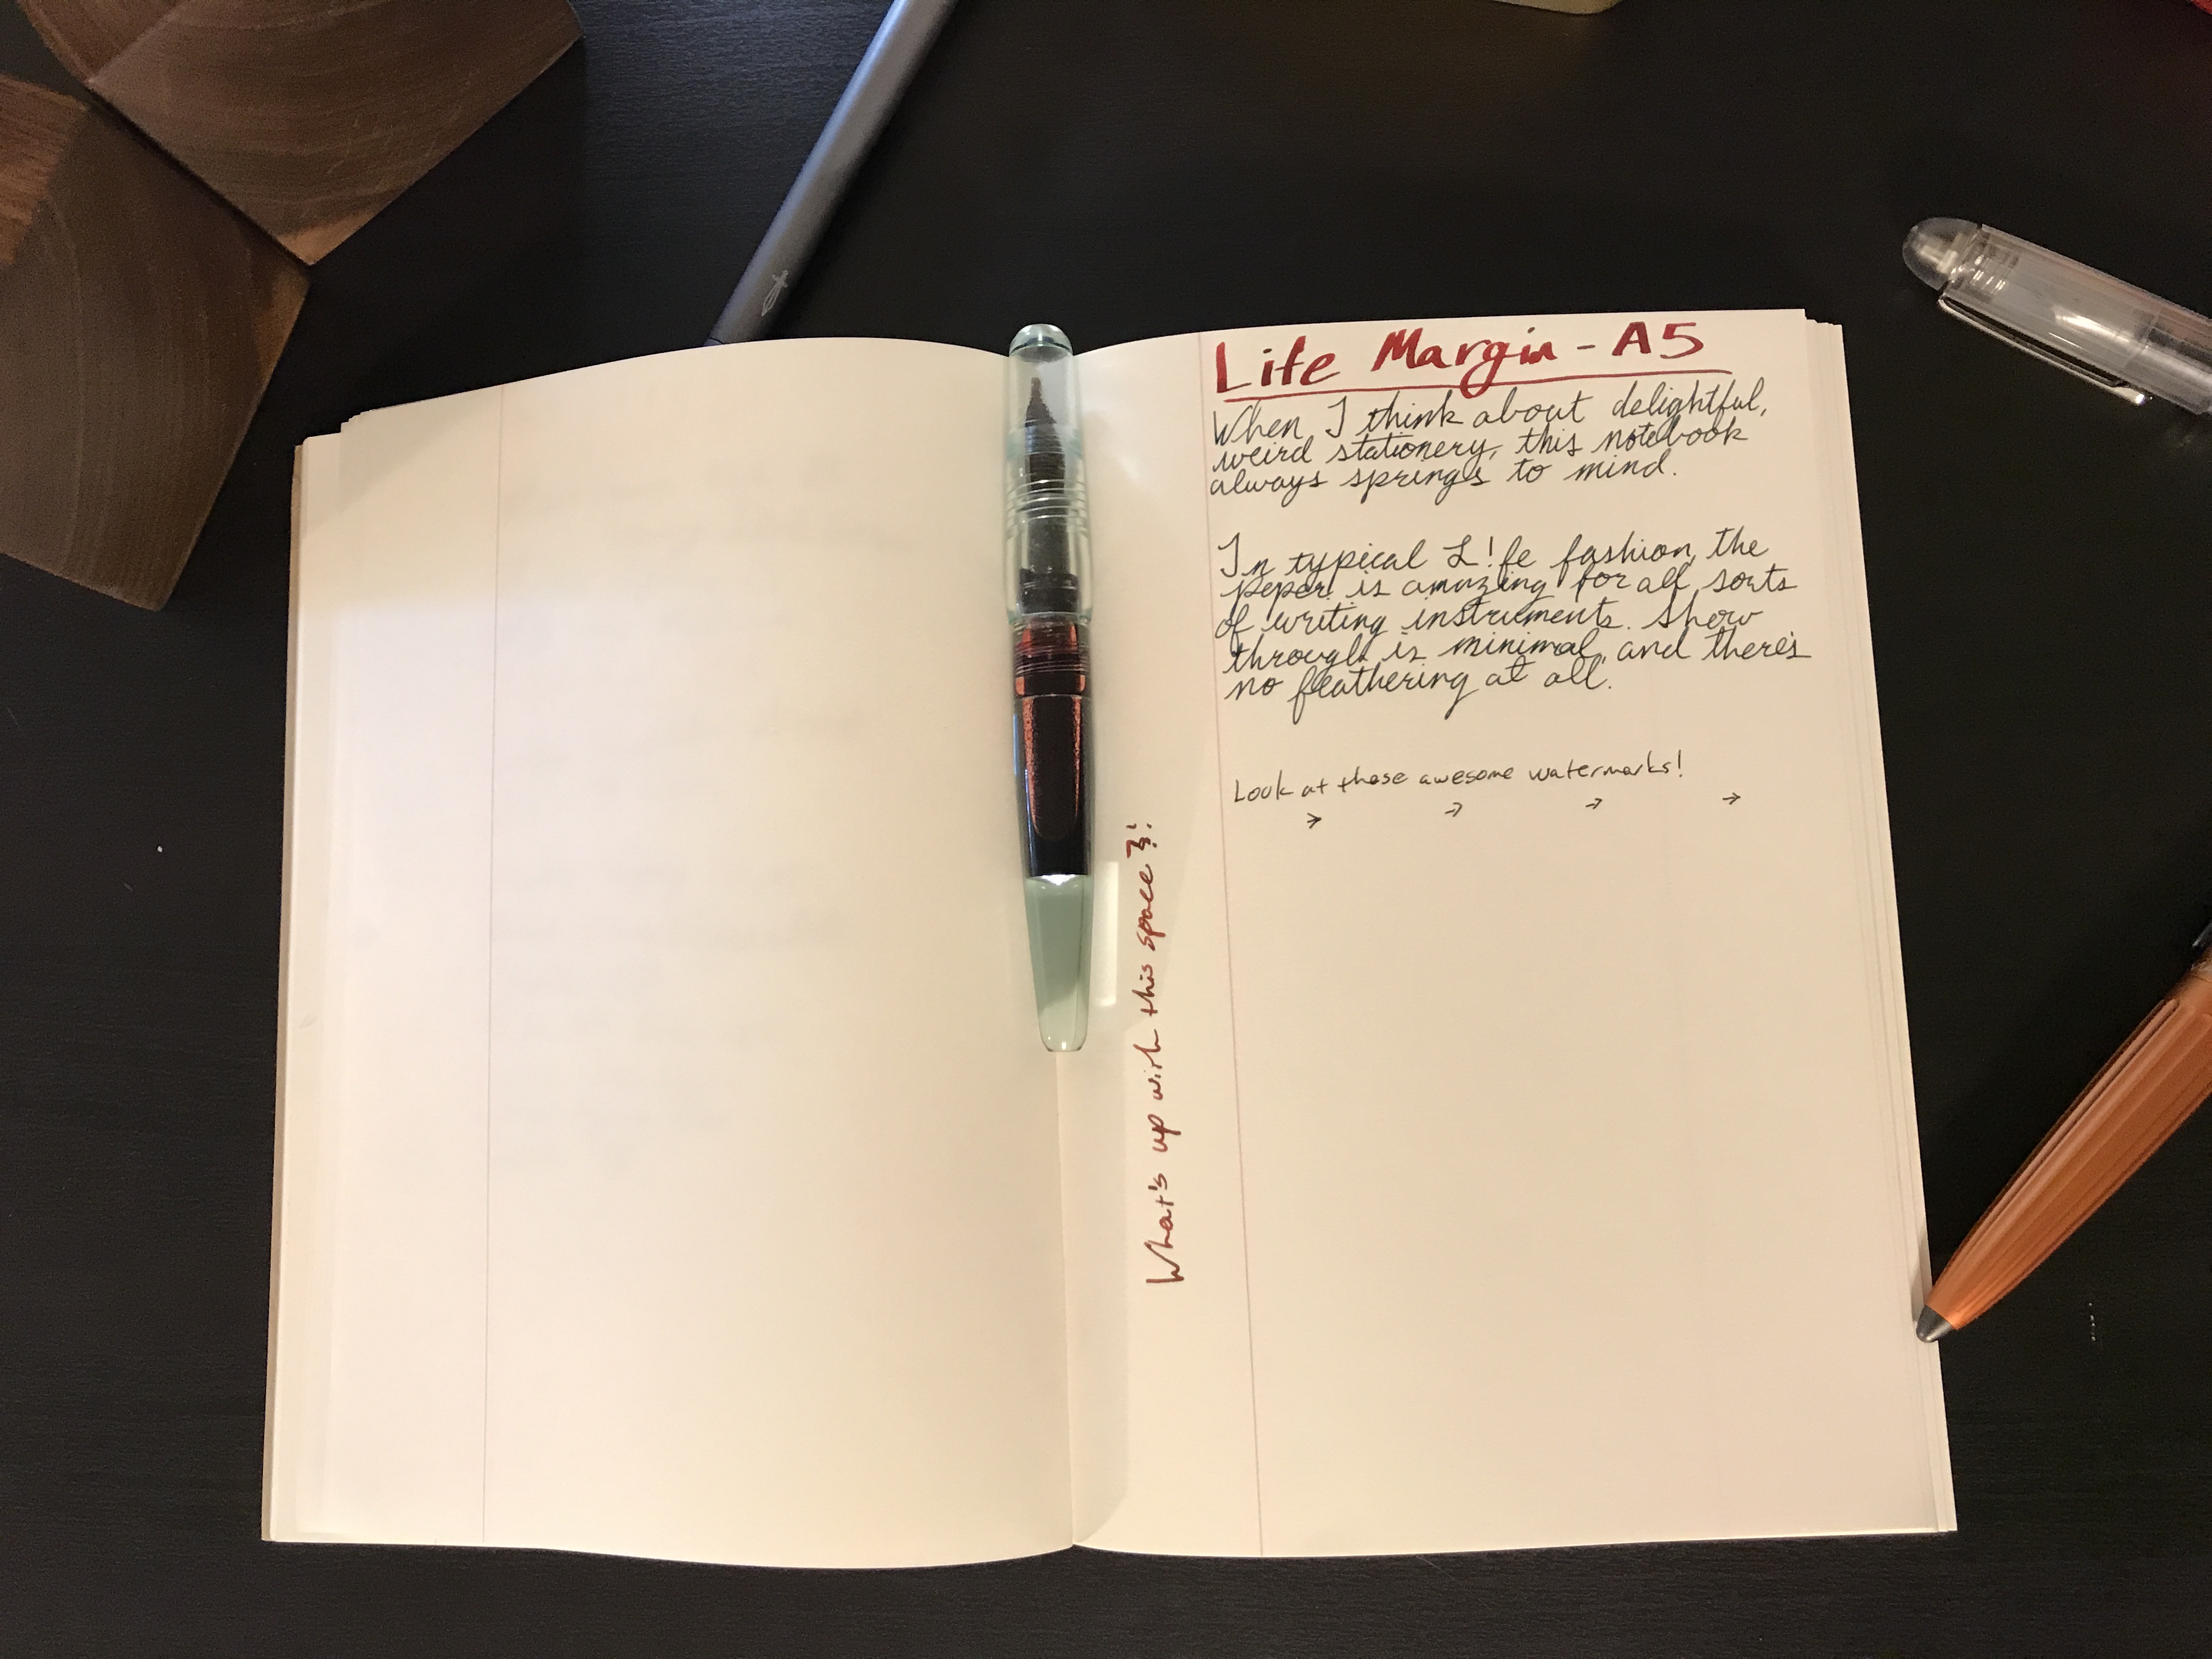 Life Margin - A5
When I think about delightful,
weird stationery, this notebook
always springs to mind.
In typical L!fe fashion, the
peper is amazing for all sorts
of writing instruments. Show
through is minimal, and there's
no feathering at all.
Look at those awesome watermarks!
→ → → →
What's up with this space?!